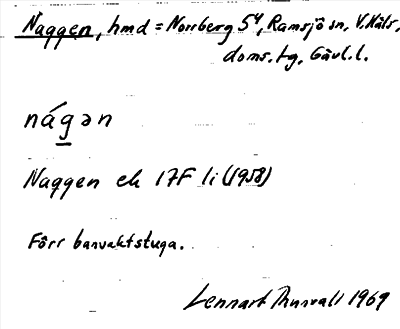 Naggen, hmd = Norrberg 5⁴, Ramsjö sn, V. Häls.
doms. tg, Gävl. l.
nágən
Naggen ek 17F li (1958)
Förr banvaktstuga.
Lennart Thunvall 1969